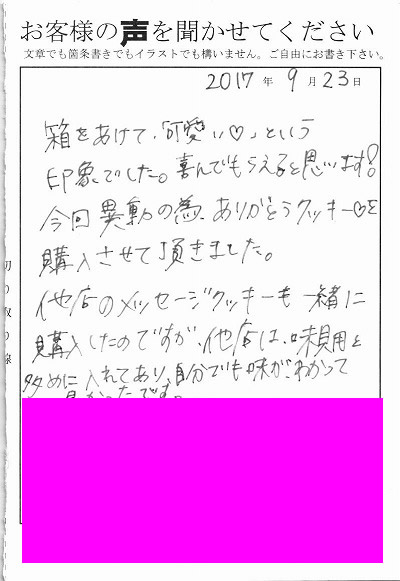 お客様の声を聞かせてください
文章でも箇条書きでもイラストでも構いません。ご自由にお書き下さい。
2017年9月23日
箱をあけて、「可愛い♡」という
印象でした。喜んでもらえると思います!
今回異動の為、ありがとうクッキー♡を
購入させて頂きました。
他店のメッセージクッキーも一緒に
購入したのですが、他店は、味見用と
多めに入れてあり、自分でも味が、わかって
良かったです。
切り取り線